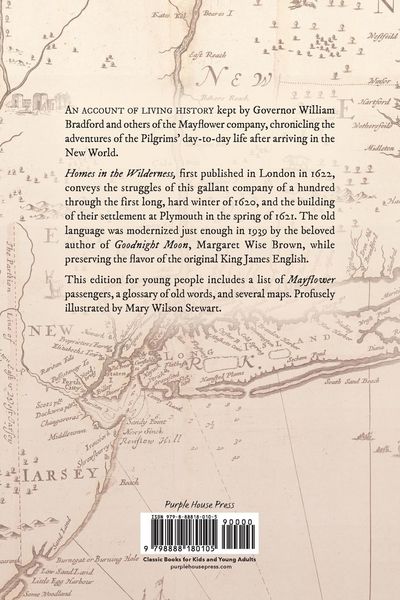 Katts Kil
Beares I
East Reach
Westfeild
NEW
Bakers Reach
Winsor
Hartford
Wethersfeild
Midleton
AN ACCOUNT OF LIVING HISTORY kept by Governor William
Bradford and others of the Mayflower company, chronicling the
adventures of the Pilgrims' day-to-day life after arriving in the
New World.
Homes in the Wilderness, first published in London in 1622,
conveys the struggles of this gallant company of a hundred
through the first long, hard winter of 1620, and the building
of their settlement at Plymouth in the spring of 1621. The old
language was modernized just enough in 1939 by the beloved
author of Goodnight Moon, Margaret Wise Brown, while
preserving the flavor of the original King James English.
This edition for young people includes a list of Mayflower
passengers, a glossary of old words, and several maps. Profusely
illustrated by Mary Wilson Stewart.
NEW
LONG
Staten I
Sandy Point
South Sand Beach
Middletown
Renslow Hill
Shrewsbury
IARSEY
Beach
Sand Land
Burnegat or Burning Hole
Low Sand Land
Little Egg Harbour
Some Woodland
Purple House Press
ISBN 979-8-88818-010-5
90000
9 798888 180105
Classic Books for Kids and Young Adults
purplehousepress.com